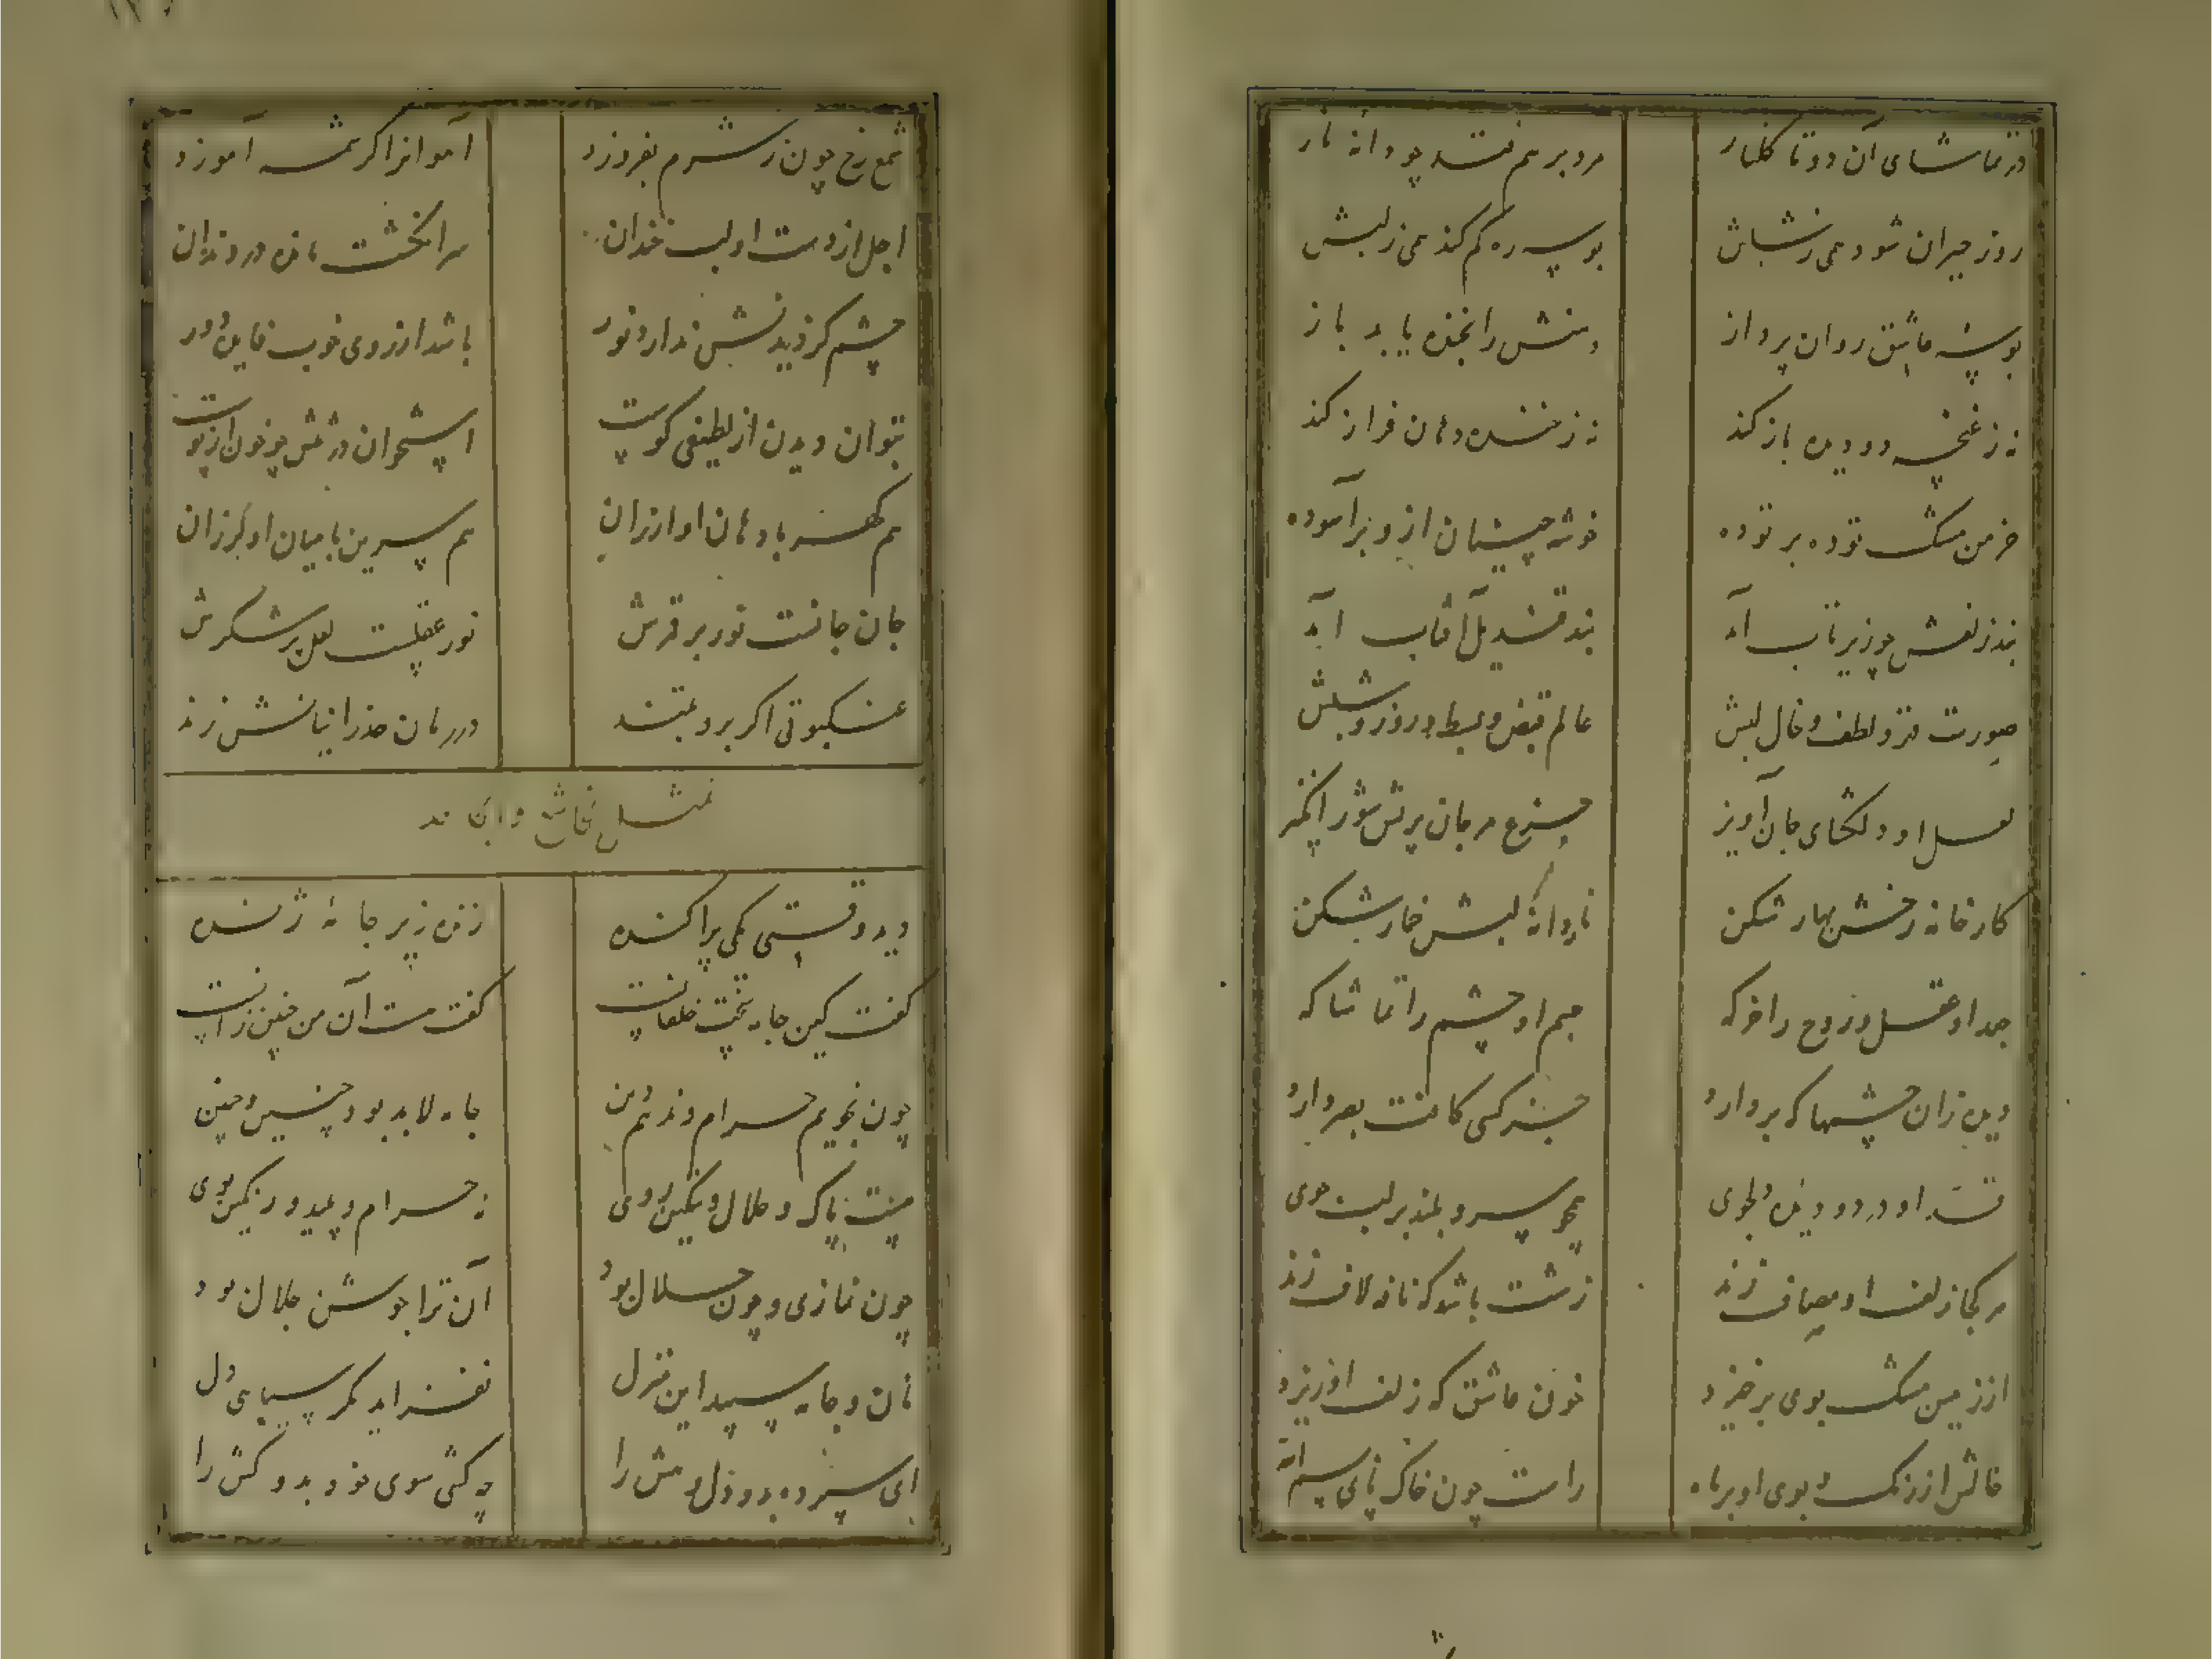 در تماشای آن دو تا گلنار
مرد بر هم فتد چو دانه نار
روز حیران شود همی ز شبش
بوسه ره گم کند همی ز لبش
بوسه عاشق روان پرداز
دهنش را بخنده یابد باز
نه ز غنچه دو دیده باز کند
نه ز خنده دهان فراز کند
خرمن مشک توده بر توده
خوشه چینان ازو برآسوده
بند زلفش چو زیر تاب آمد
بند قندیل آفتاب آمد
صورت قهر و لطف و خال لبش
عالم قبض و بسط و روز و شبش
لعل او دلگشای جان آویز
جزع مرجان پرش شور انگیز
کارخانه رخش بهار شکن
ناردانه لبش خمار شکن
جعد او عقل و روح را خرگه
جسم او چشم را تماشاگه
دیده زان چشمها که بردارد
جز کسی کافت بصر دارد
قد او در دو دیده دلجوی
همچو سرو بلند بر لب جوی
هر کجا زلف او مصاف زند
زشت باشد که نافه لاف زند
از زمین مشک بوی برخیزد
خون عاشق که زلف او ریزد
خالش از رنگ و بوی او بر ماه
راست چون خاک پای بسم الله
شمع رخ چون ز شرم بفروزد
آهوانرا کرشمه آموزد
اجل از دست او لب خندان
سر انگشت مانده در دندان
چشم کز دیدنش ندارد نور
باشد از روی خوب فایده دور
بتوان دیدن از لطیفی کوست
استخوان در تنش چو خون از پوست
هم گهر با دهان او ارزان
هم سرین با میان او لرزان
جان جانست نور بر قمرش
نور عقلست لعل پر شکرش
عنکبوتی اگر برو بتند
در زمان عذر آنیانش زند
دید وقتی یکی پراکنده
زنده زیر جامه ژنده
گفت کین جامه سخت خلقانست
گفت هست آن من چنین زانست
چون نجویم حرام و ندهم دین
جامه لابد بود چنین و چنین
هست پاک و حلال و نیکین روی
نه حرام و پلید و رنگین بوی
چون نمازی و چون حلال بود
آن ترا جوشن جلال بود
نان و جامه سپید این منزل
نفزاید مگر سیاهی دل
ای سپرده بدو دل و هش را
چه کشی سوی خود بدو کش را